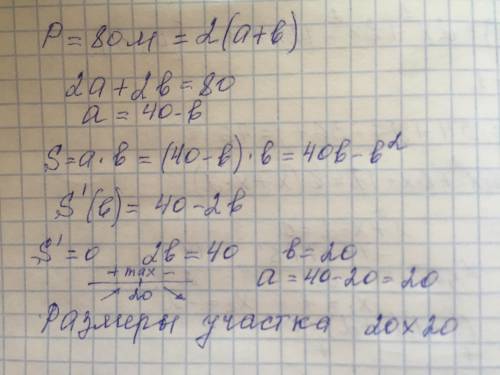 P = 80м = 2(a+b)
2a + 2b = 80
a = 40-b
S = a·b = (40-b)·b = 40b-b²
S'(b) = 40-2b
S' = 0 2b = 40 b = 20
+ max -
20
a = 40-20 = 20
Размеры участка 20×20